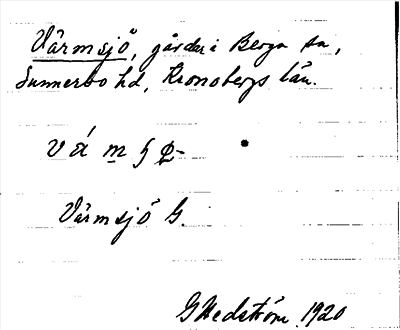 Värmsjö, gårdar i Berga sn,
Sunnerbo hd, Kronobergs län.
Värmsjö G.
G Hedström 1920